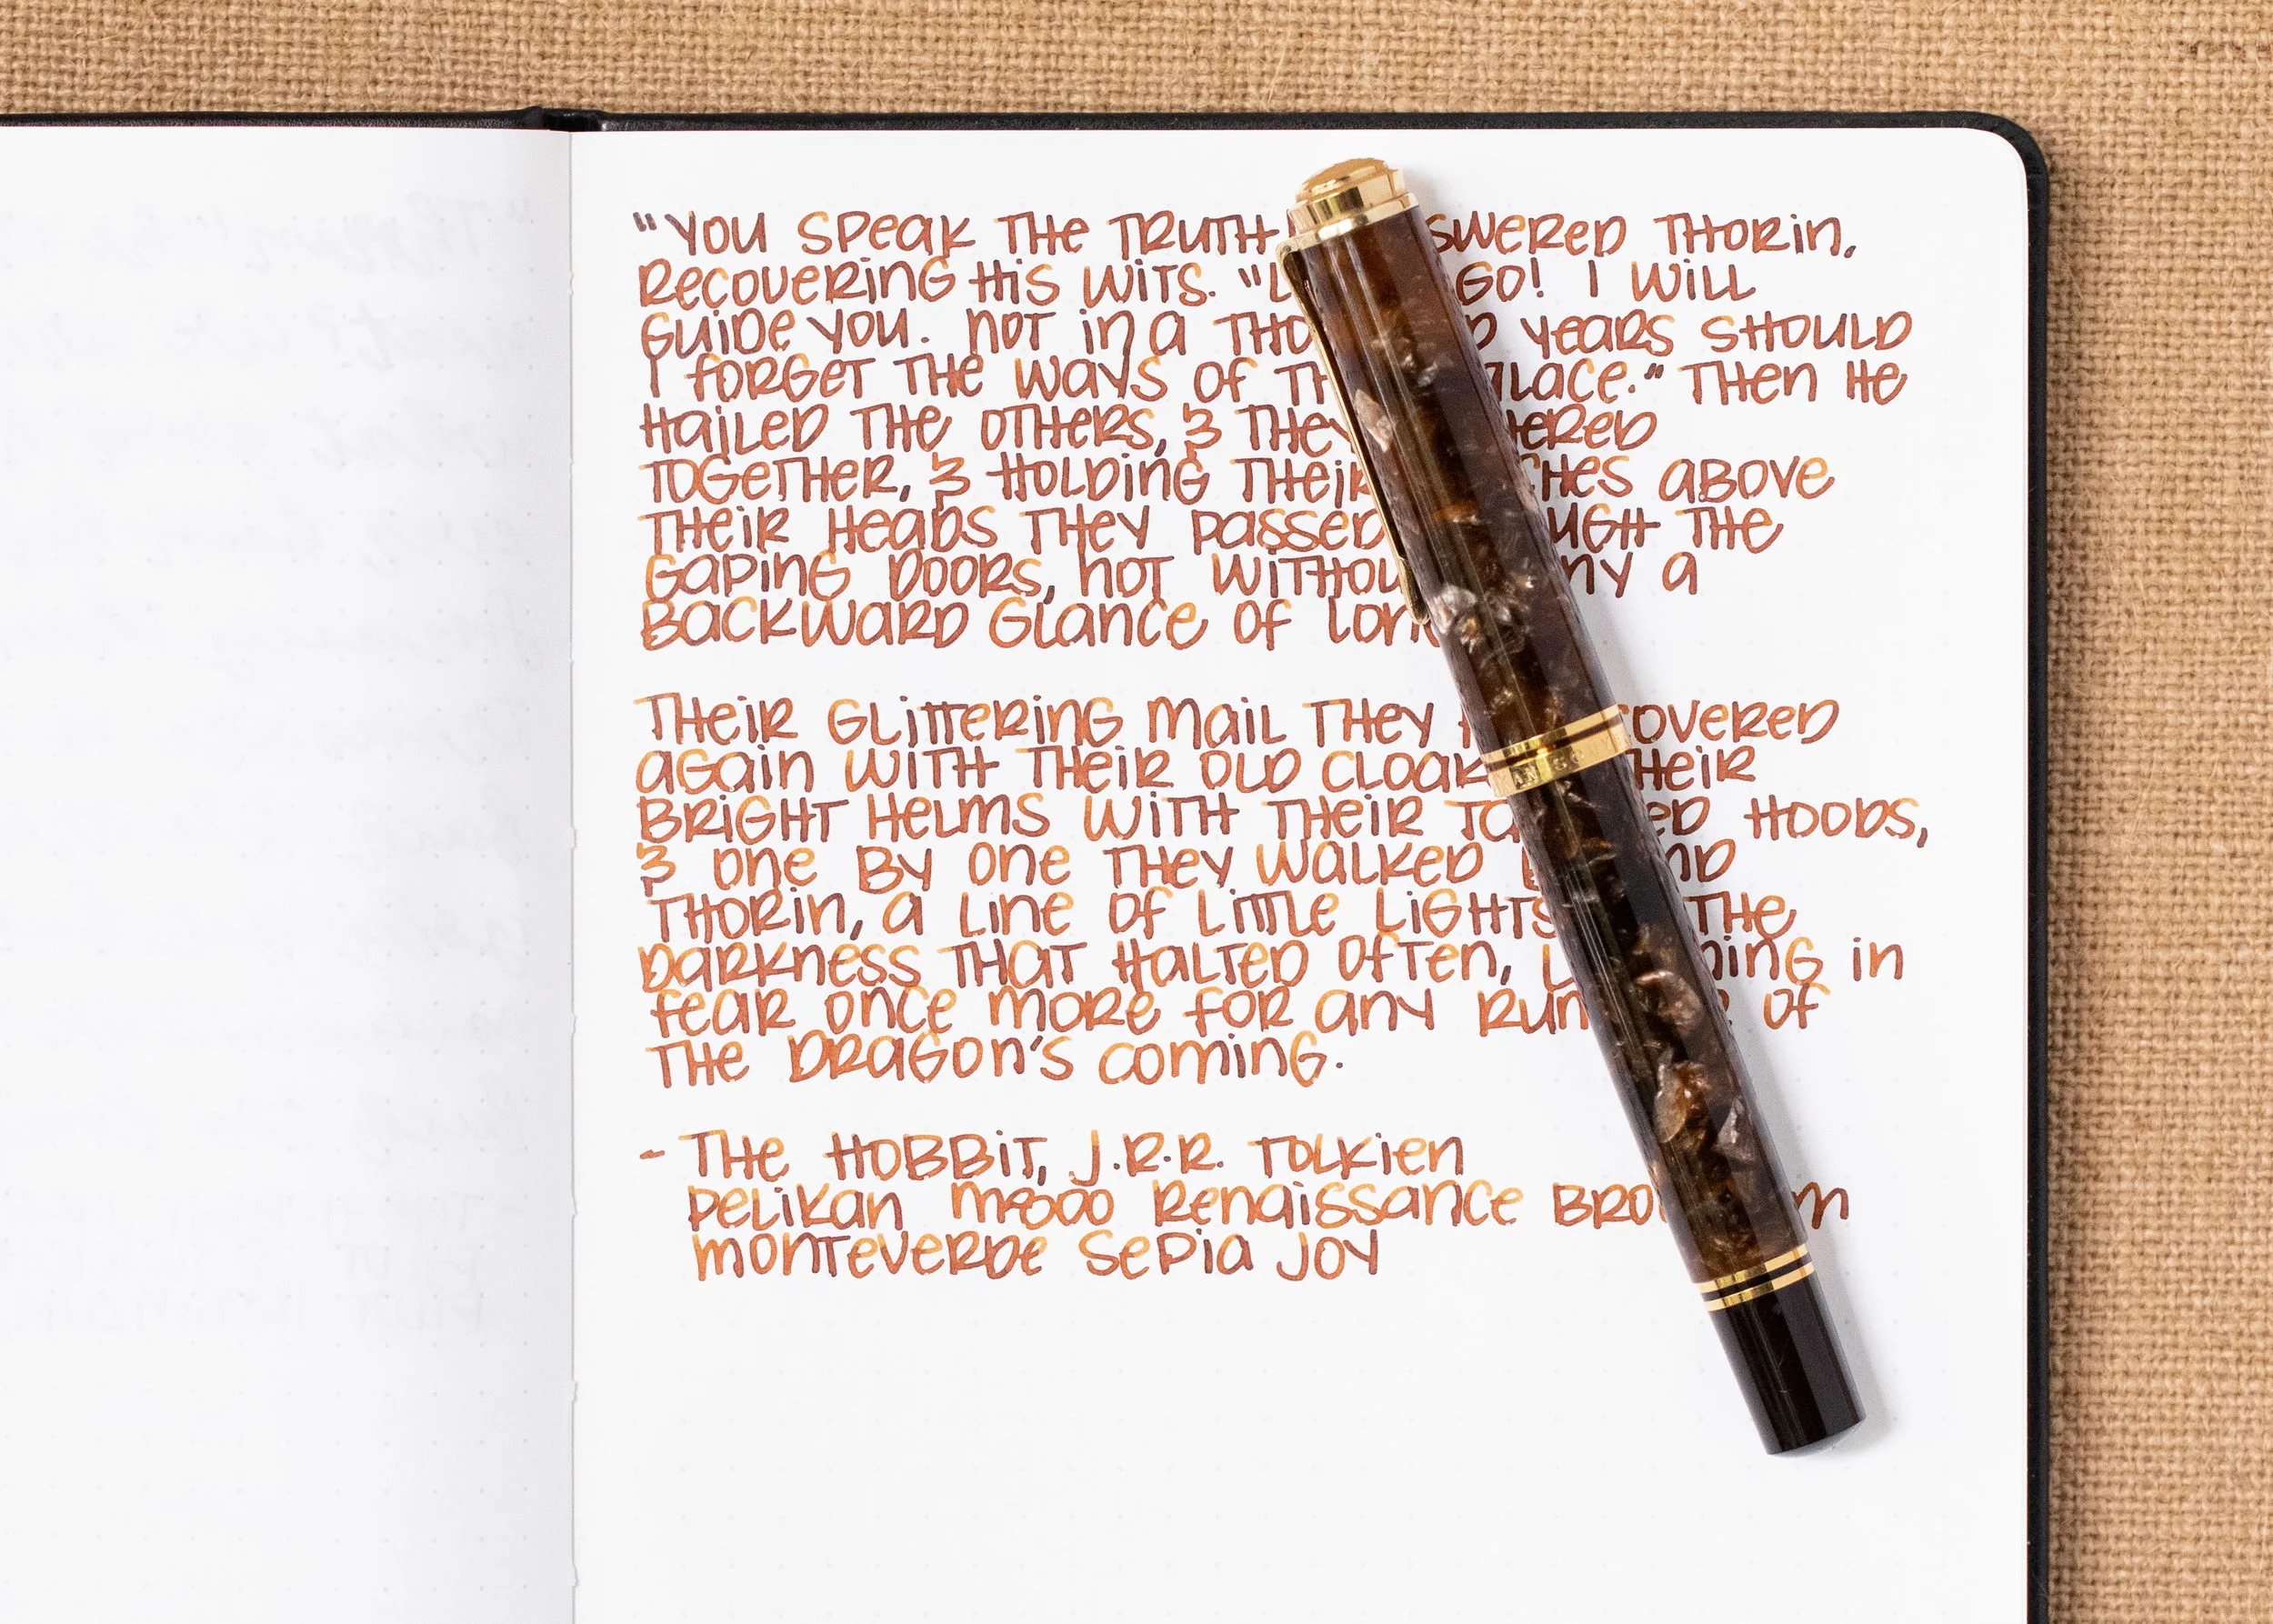 "You speak the truth
swered Thorin,
recovering his wits. "L
go! I will
guide you. Not in a tho
d years should
I forget the ways of th
alace." Then he
hailed the others, & they
ered
together, & holding their
ches above
their heads they passed
ugh the
gaping doors, not withou
ny a
backward glance of lon
Their glittering mail they
covered
again with their old cloak
their
bright helms with their ta
ed hoods,
& one by one they walked
nd
Thorin, a line of little lights
the
darkness that halted often, l
ning in
fear once more for any rum
of
the dragon's coming.
- The Hobbit, J.R.R. Tolkien
Pelikan M800 Renaissance Bro
m
Monteverde Sepia Joy